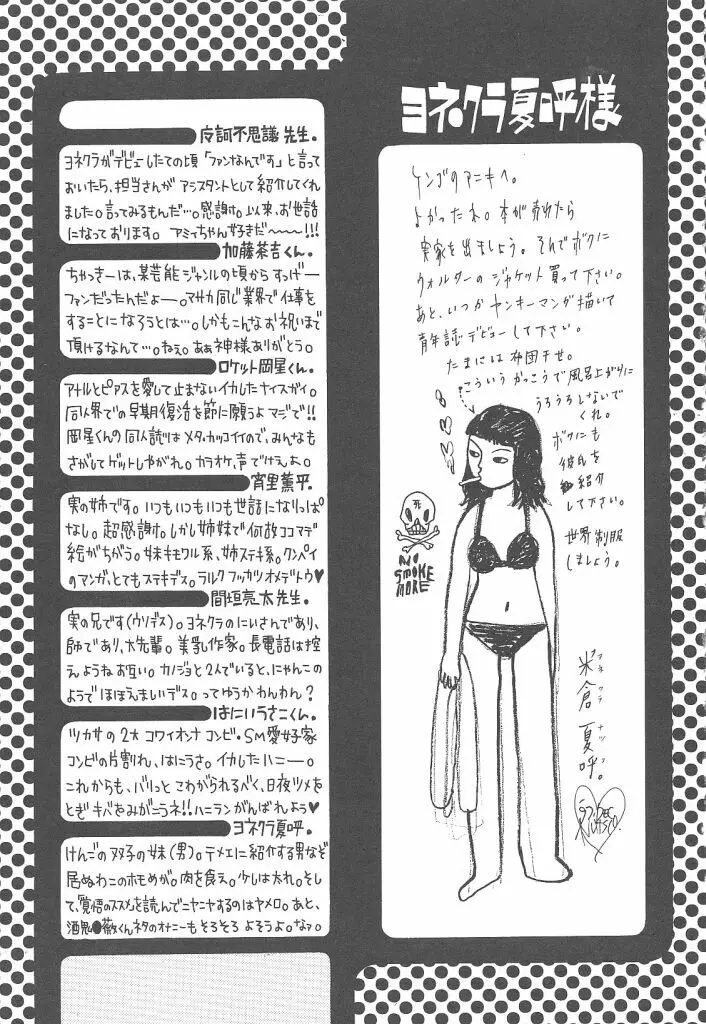 ヨネクラ夏呼様
ケンゴのアニキへ。
よかったね。本が売れたら
実家を出ましょう。そんでボクに
ウォルターのジャケット買って下さい。
あと、いつかヤンキーマンガ描いて
青年誌デビューして下さい。
たまには布団干せ。
こういうかっこうで風呂上がりに
うろうろしないで
くれ。
ボクにも
彼氏を
紹介
して下さい。
世界制服
しましょう。
死
NO
SMOKE
MORE
米倉夏呼。
ヨネクラ ナツコ
皮訶不思議先生。
ヨネクラがデビューしたての頃「ファンなんです」と言って
おいたら、担当さんがアシスタントとして紹介してくれ
ました。言ってみるもんだ…。感謝。以来、お世話
になっております。アミィちゃん好きだ〜〜〜!!!
加藤茶吉くん。
ちゃっきーは、某芸能ジャンルの頃からすっげー
ファンだったんだよー。マサカ同じ業界で仕事を
することになろうとは…。しかもこんなお祝いまで
頂けるなんて…。ねぇ。あぁ神様ありがとう。
ロケット岡星くん。
アナルとピアスを愛して止まないイカしたナイスガイ。
同人界での早期復活を節に願うよマジで!!
岡星くんの同人誌はメタメタカッコイイので、みんなも
さがしてゲットしやがれ。カラオケ、声でけえよ。
宵里薫平。
実の姉です。いつもいつもいつも世話になりっぱ
なし。超感謝。しかし姉妹で何故ココマデ
絵がちがう。妹キモワル系、姉ステキ系。クンペイ
のマンガ、とてもステキデス。ラルクフッカツオメデトウ♥
間垣亮太先生。
実の兄です(ウソデス)。ヨネクラのにいさんであり、
師であり、大先輩。美乳作家。長電話は控
えようねお互い。カノジョと2人でいると、にゃんこの
ようでほほえましいデス。ってゆうかわんわん?
はにいうさこくん。
ツカサの2大コワイオンナコンビ。SM愛好家
コンビの片割れ、はにうさ。イカしたハニー。
これからも、バリっとこわがられるべく、日夜ツメを
とぎキバをみがこうネ!!ハニランがんばれよう♥
ヨネクラ夏呼。
けんごの双子の妹(男)。テメエに紹介する男など
居ぬわこのホモめが。肉を食え。少しは太れ。そし
て、覚悟のススメを読んでニヤニヤするのはヤメロ。あと、
酒鬼●薇くんネタのオナニーもそろそろよそうよ。なァ。